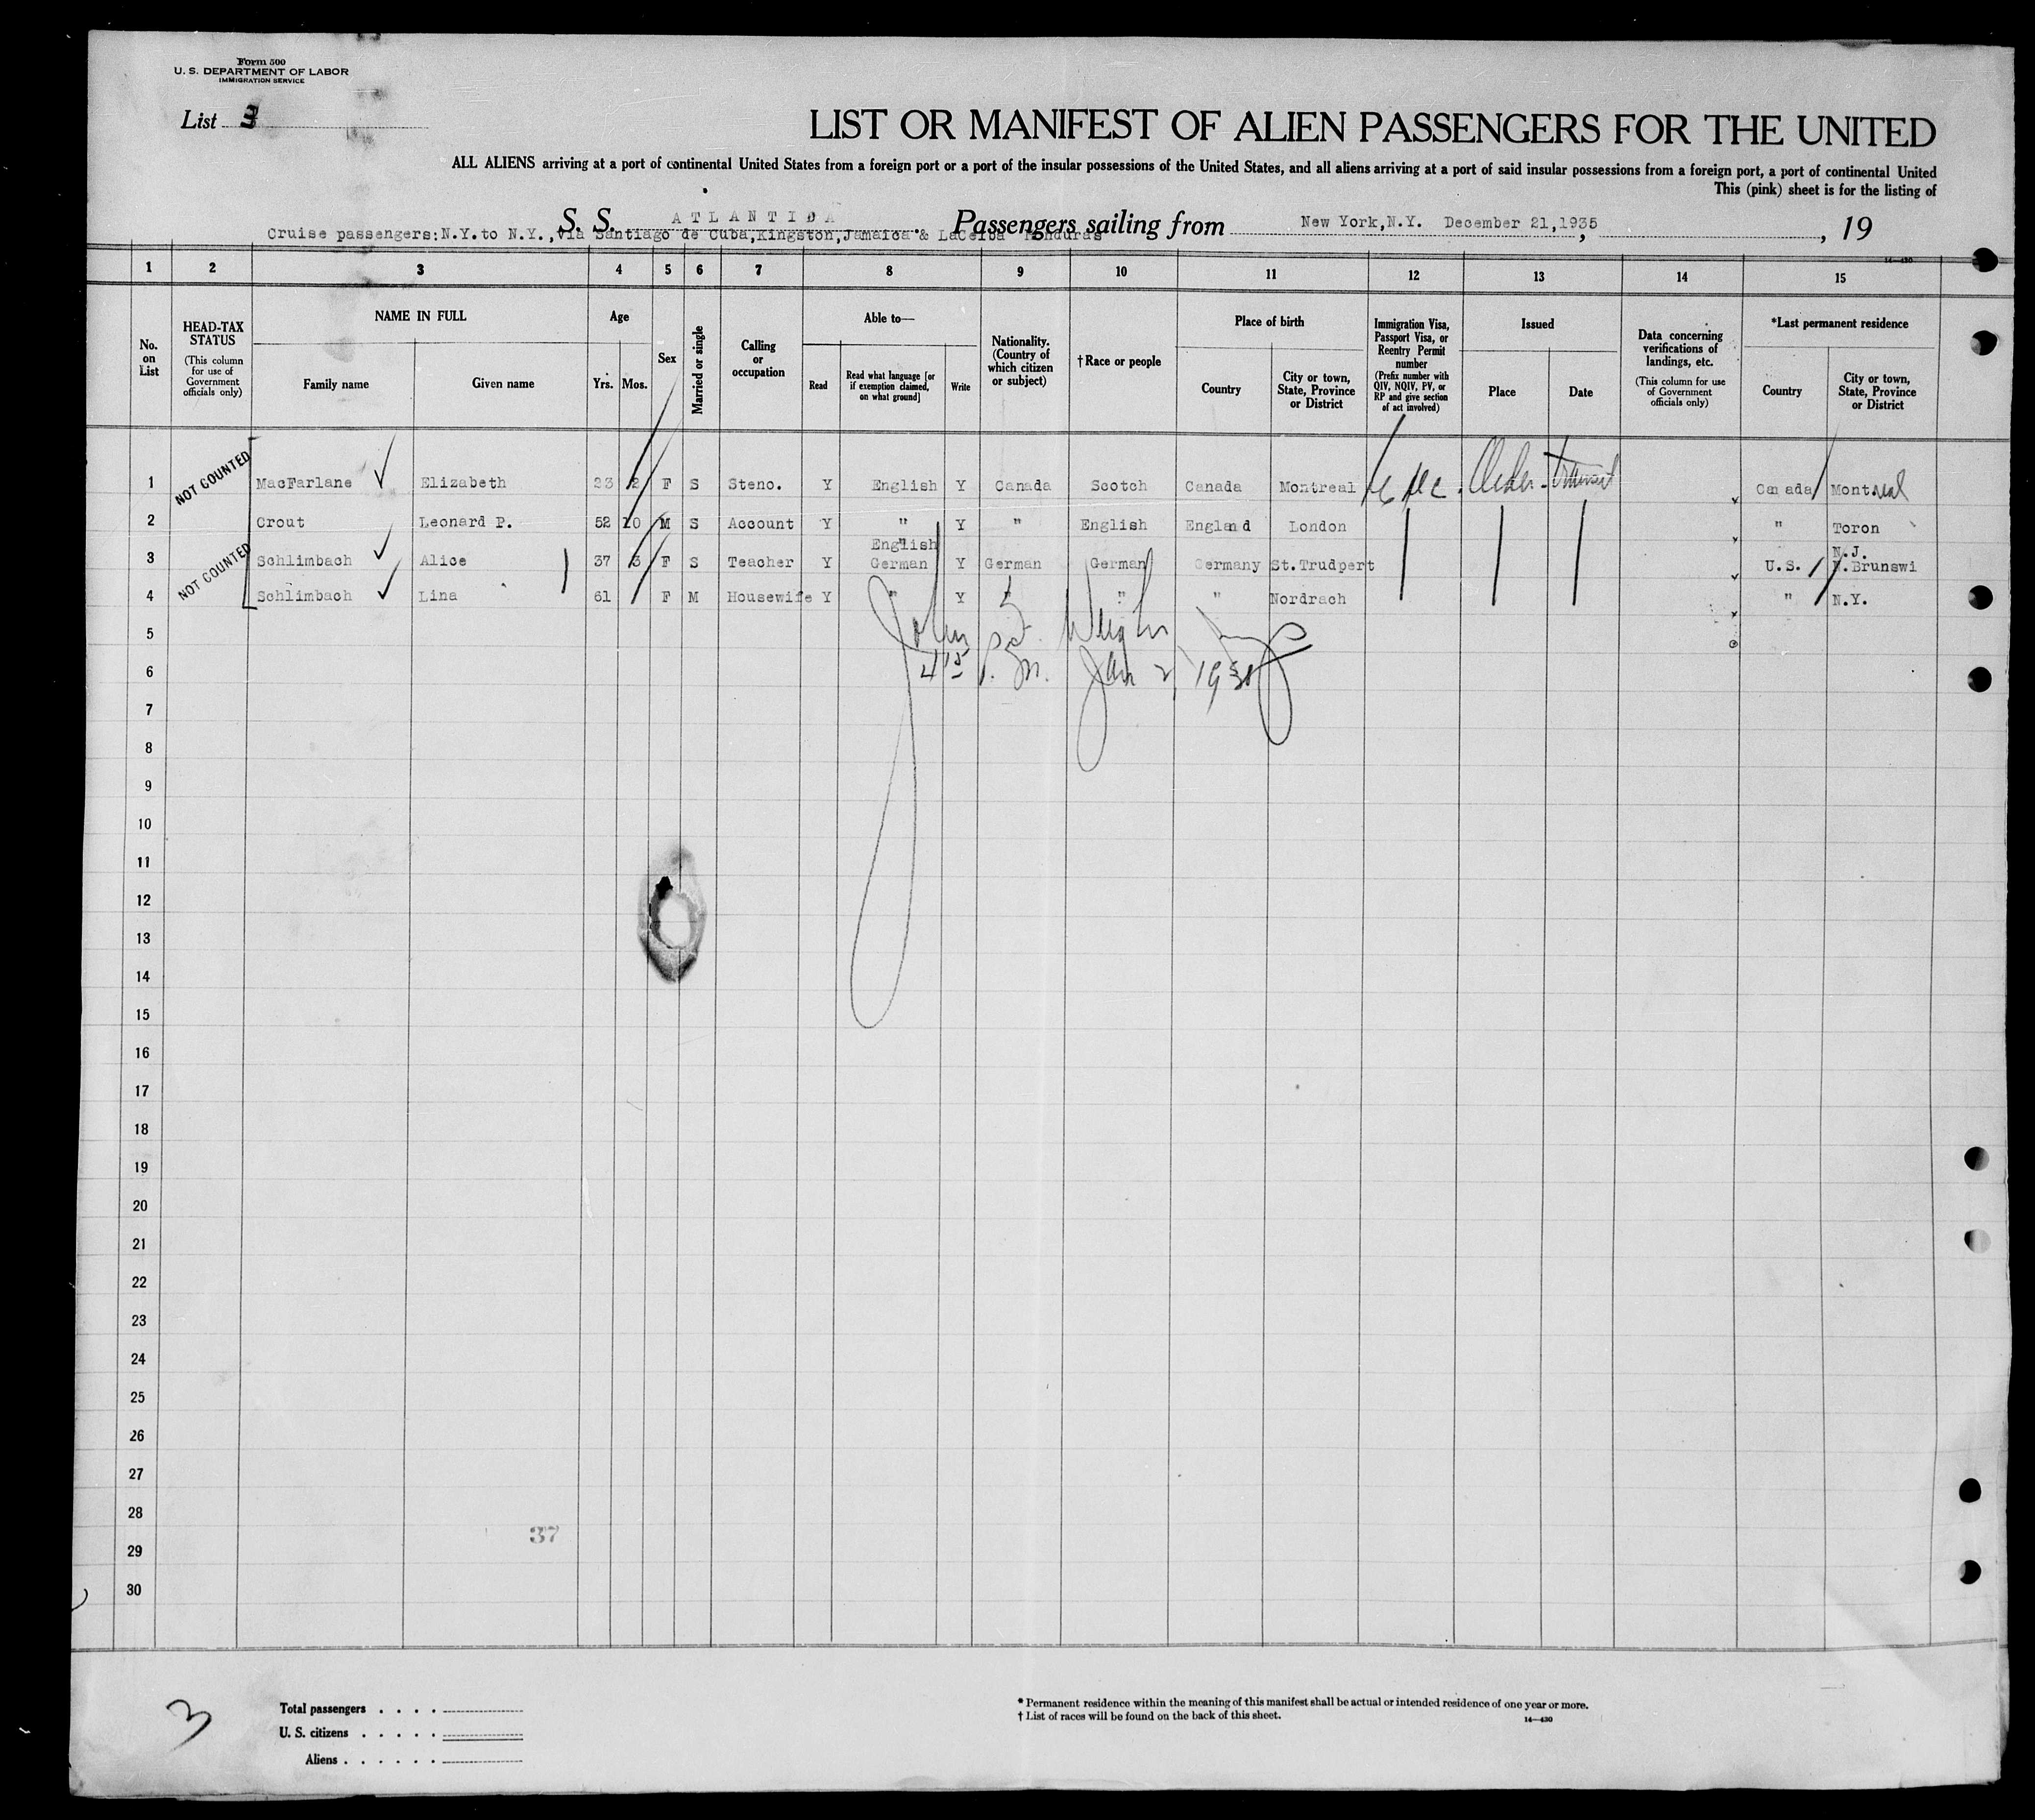 Form 500
U. S. DEPARTMENT OF LABOR
IMMIGRATION SERVICE
List 3
LIST OR MANIFEST OF ALIEN PASSENGERS FOR THE UNITED
ALL ALIENS arriving at a port of continental United States from a foreign port or a port of the insular possessions of the United States, and all aliens arriving at a port of said insular possessions from a foreign port, a port of continental United
This (pink) sheet is for the listing of
S. S. ATLANTIDA Passengers sailing from New York,N.Y. December 21,1935, , 19
Cruise passengers:N.Y.to N.Y.,via Santiago de Cuba,Kingston,Jamaica & LaCeiba Honduras
14—430
1 2 3 4 5 6 7 8 9 10 11 12 13 14 15
No. on List
HEAD-TAX STATUS
(This column for use of Government officials only)
NAME IN FULL
Family name Given name
Age
Yrs. Mos.
Sex
Married or single
Calling or occupation
Able to—
Read Read what language [or if exemption claimed, on what ground] Write
Nationality. (Country of which citizen or subject)
† Race or people
Place of birth
Country City or town, State, Province or District
Immigration Visa, Passport Visa, or Reentry Permit number
(Prefix number with QIV, NQIV, PV, or RP and give section of act involved)
Issued
Place Date
Data concerning verifications of landings, etc.
(This column for use of Government officials only)
*Last permanent residence
Country City or town, State, Province or District
NOT COUNTED
1 MacFarlane Elizabeth 23 2 F S Steno. Y English Y Canada Scotch Canada Montreal Canada Montreal
2 Crout Leonard P. 52 10 M S Account Y " Y " English England London " Toron
NOT COUNTED
English N.J.
3 Schlimbach Alice 37 3 F S Teacher Y German Y German German Germany St.Trudpert U.S. N.Brunswi
4 Schlimbach Lina 61 F M Housewife Y " Y " " " Nordrach " N.Y.
5
6
P. M. Jan 2,
7
8
9
10
11
12
13
14
15
16
17
18
19
20
21
22
23
24
25
26
27
28
37
29
30
3
Total passengers . . . .
U. S. citizens . . . . .
Aliens . . . . . .
* Permanent residence within the meaning of this manifest shall be actual or intended residence of one year or more.
† List of races will be found on the back of this sheet.
14—430